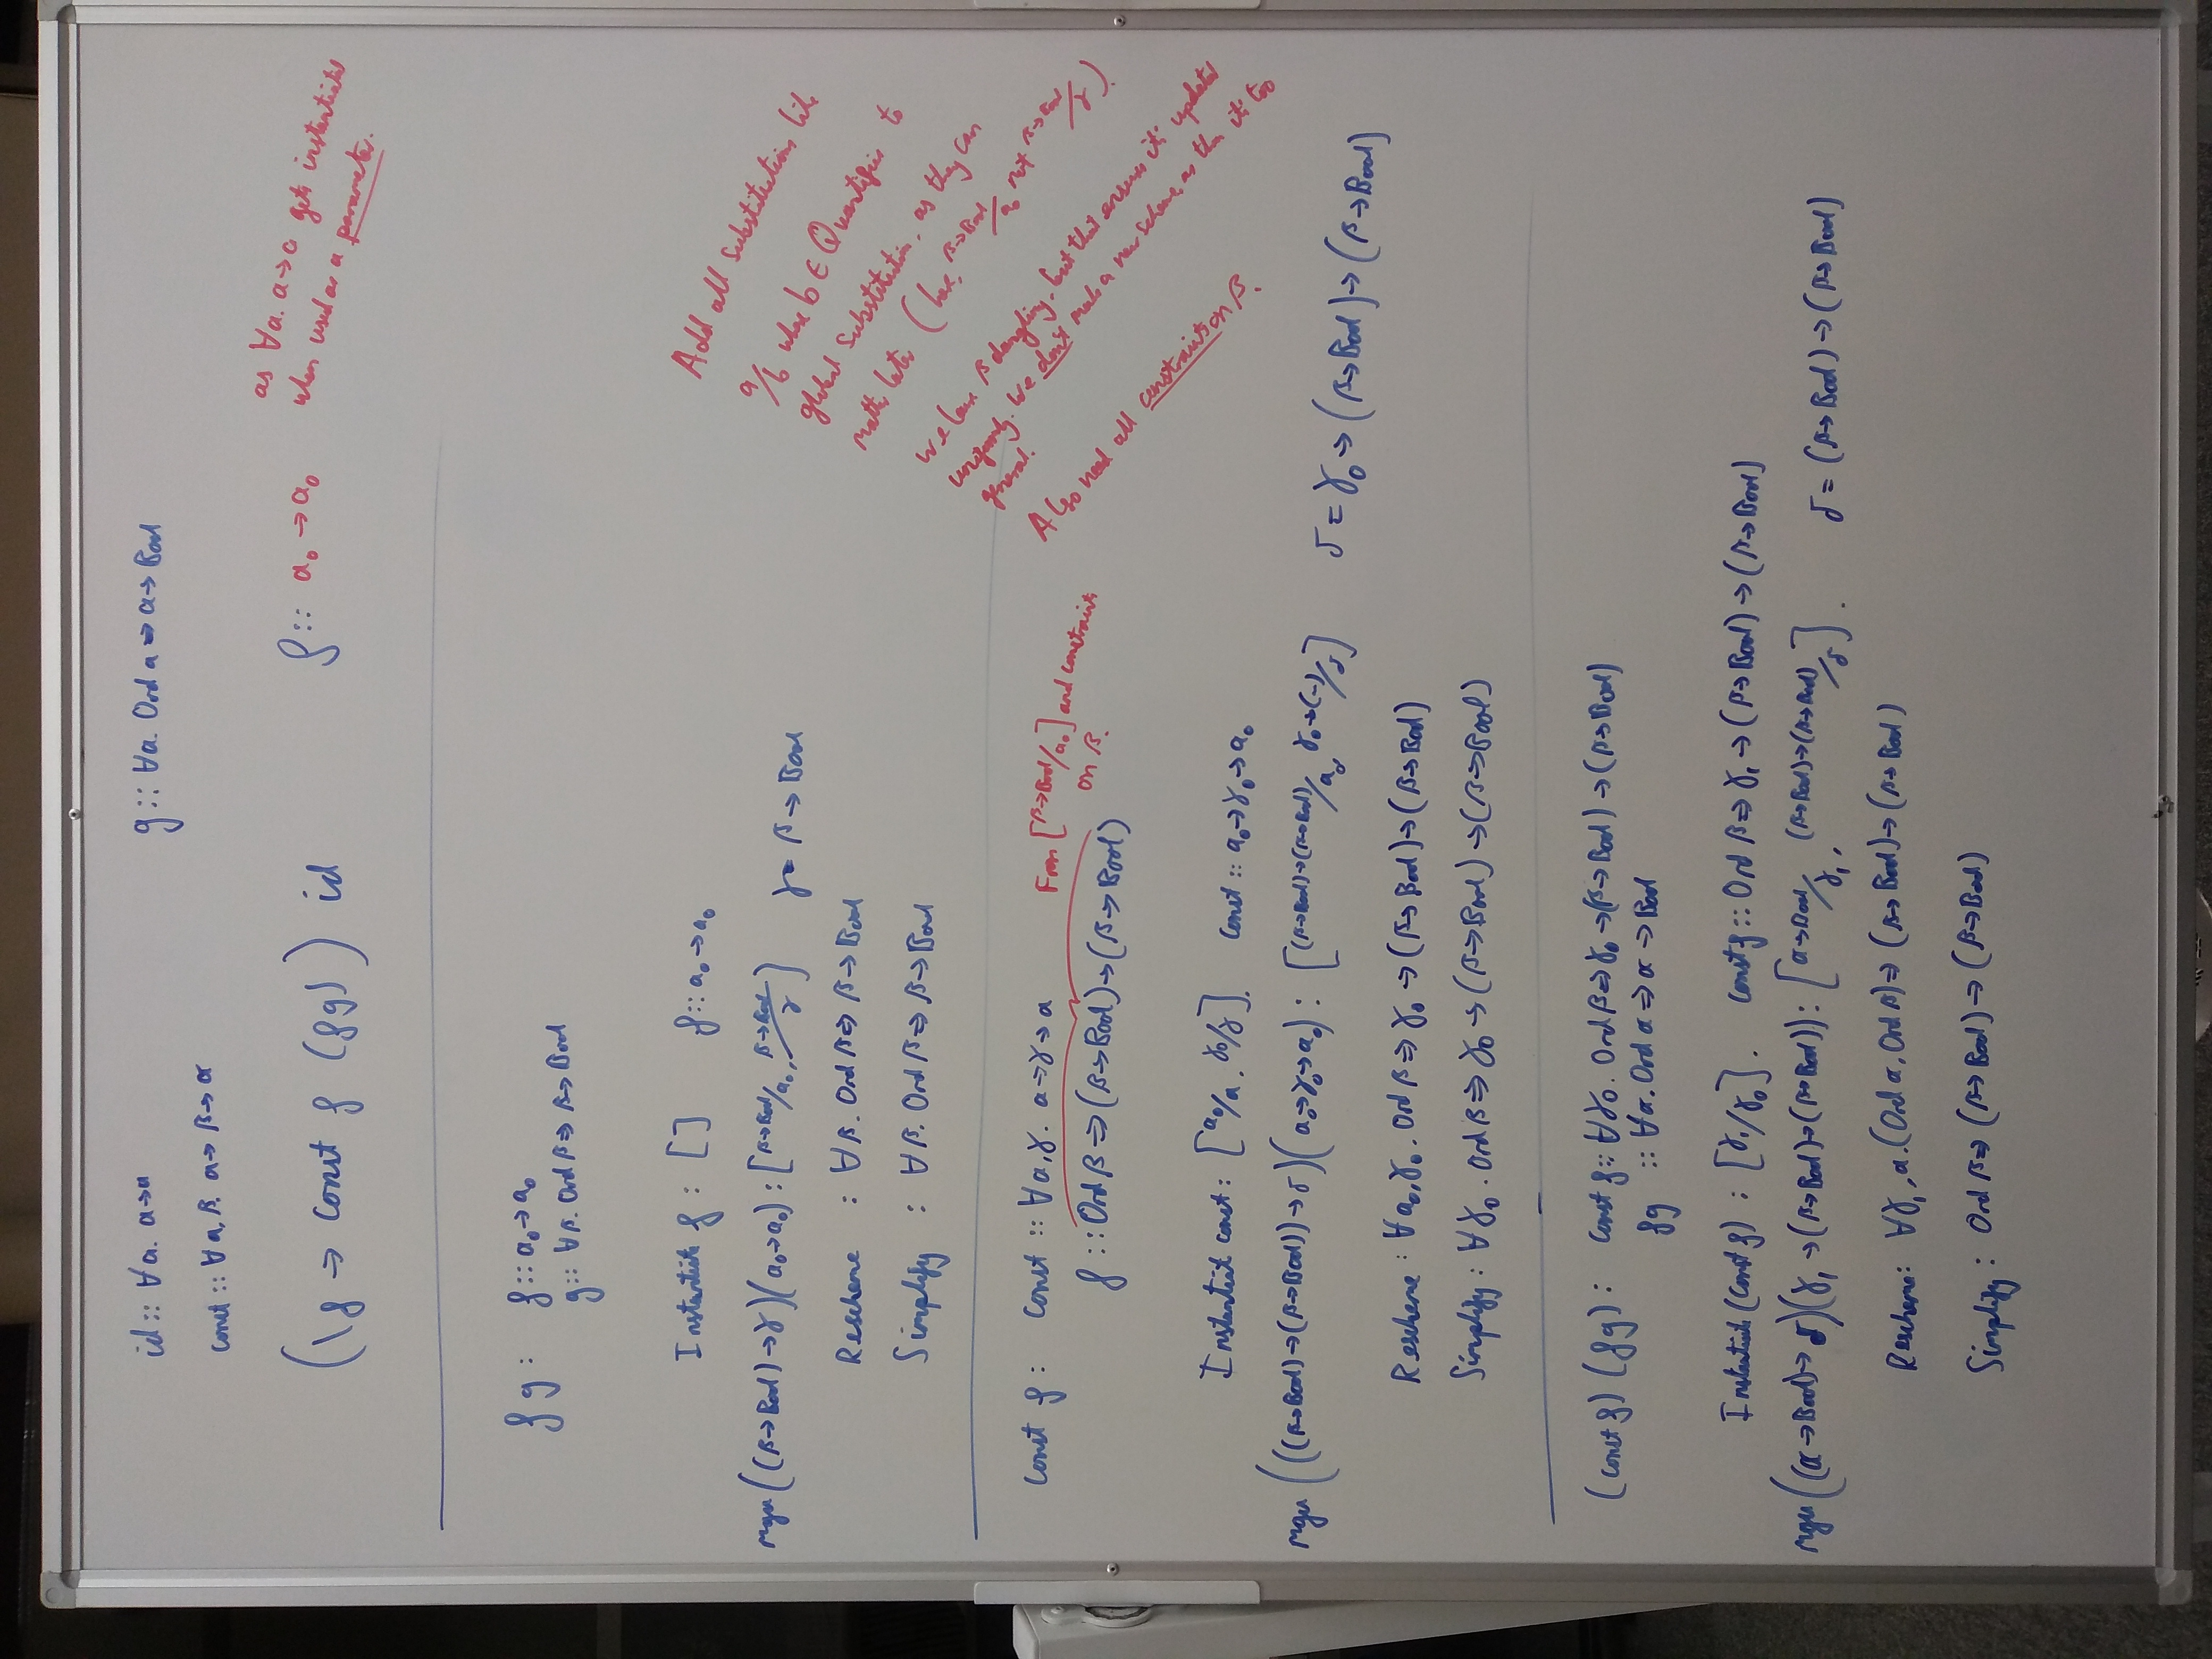 id :: ∀α. α→α
g :: ∀α. Ord α ⇒ α → Bool
const :: ∀α, β. α → β → α
(\f → const f (f g)) id
f :: α₀ → α₀
as ∀α. α→α gets instantiated
when used as a parameter.
f g : f :: α₀ → α₀
g :: ∀β. Ord β ⇒ β → Bool
Instantiate f : [] f :: α₀ → α₀
mgu ((β→Bool)→γ)(α₀→α₀) : [β→Bool/α₀, β→Bool/γ] γ = β → Bool
Rescheme : ∀β. Ord β ⇒ β → Bool
Simplify : ∀β. Ord β ⇒ β → Bool
Add all substitutions like
a/b where b ∈ Quantifier to
global substitution, as they can
matter later (here, β→Bool/α₀ not β→Bool/γ).
We leave β dangling, but that ensures it's updated
uniformly. We don't make a new scheme, as then it's too
general.
Also need all constraints on β.
const f : const :: ∀α,γ. α→γ→α
From [β→Bool/α₀] and constraints
on β.
f :: Ord β ⇒ (β→Bool)→(β→Bool)
Instantiate const : [α₀/α, γ₀/γ]. const :: α₀→γ₀→α₀
mgu (((β→Bool)→(β→Bool))→δ)(α₀→γ₀→α₀) : [(β→Bool)→(β→Bool)/α₀, γ₀→(-)/δ] δ = γ₀ → (β→Bool) → (β→Bool)
Rescheme : ∀α₀,γ₀. Ord β ⇒ γ₀ → (β→Bool)→(β→Bool)
Simplify : ∀γ₀. Ord β ⇒ γ₀ → (β→Bool) → (β→Bool)
(const f) (f g) : const f :: ∀γ₀. Ord β ⇒ γ₀ → (β→Bool) → (β→Bool)
f g :: ∀α. Ord α ⇒ α → Bool
Instantiate (const f) : [γ₁/γ₀]. const f :: Ord β ⇒ γ₁ → (β→Bool) → (β→Bool)
mgu ((α→Bool)→δ)(γ₁→(β→Bool)→(β→Bool)) : [α→Bool/γ₁, (β→Bool)→(β→Bool)/δ]. δ = (β→Bool) → (β→Bool)
Rescheme : ∀γ₁, α. (Ord α, Ord β) ⇒ (β→Bool) → (β→Bool)
Simplify : Ord β ⇒ (β→Bool) → (β→Bool)